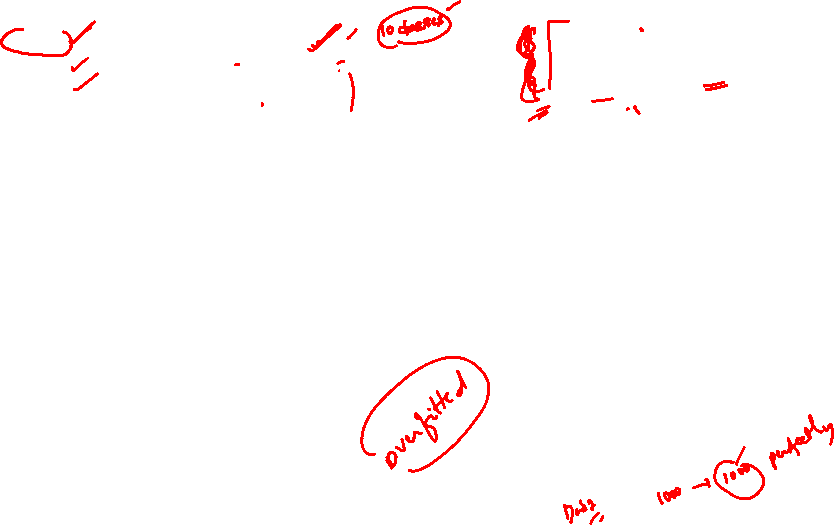 10 classes
overfitted
1000 → 1000 perfectly
Data